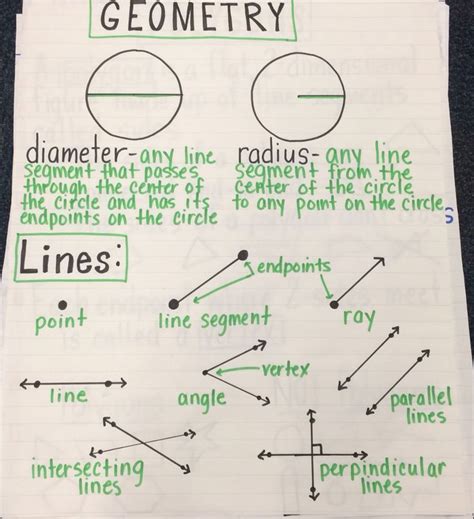 GEOMETRY
diameter - any line
segment that passes
through the center of
the circle and has its
endpoints on the circle
radius - any line
segment from the
center of the circle
to any point on the circle
s
Lines:
endpoints
point
line segment
ray
vertex
line
angle
parallel
lines
intersecting
lines
perpindicular
lines